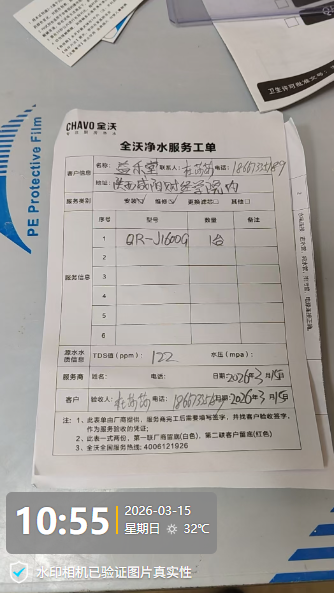 PE Protective Film
CHAVO 全沃
全沃净水服务工单
客户信息 名称: 益乐堂 联系人: 杜茹茹 电话:
地址: 陕西咸阳财经学院内
服务类别 安装 维修 更换滤芯 其他
序号 型号 数量 备注
1 QR-J1600G 1台
2
3
服务信息
4
5
6
源水水质信息 TDS值(ppm): 122 水压(mpa):
服务商 姓名: 电话: 日期: 2026年3月15日
客户 验收人: 杜茹茹 电话: 日期: 2026年3月15日
注: 1、此表单由厂商提供,服务商完工后需要填写签字,并找客户验收签字,
作为服务验收的凭证;
2、此表一式两份,第一联厂商留底(白色),第二联客户留底(红色)
3、全沃全国服务热线: 4006121924
10:55
2026-03-15
星期日 32℃
水印相机已验证图片真实性